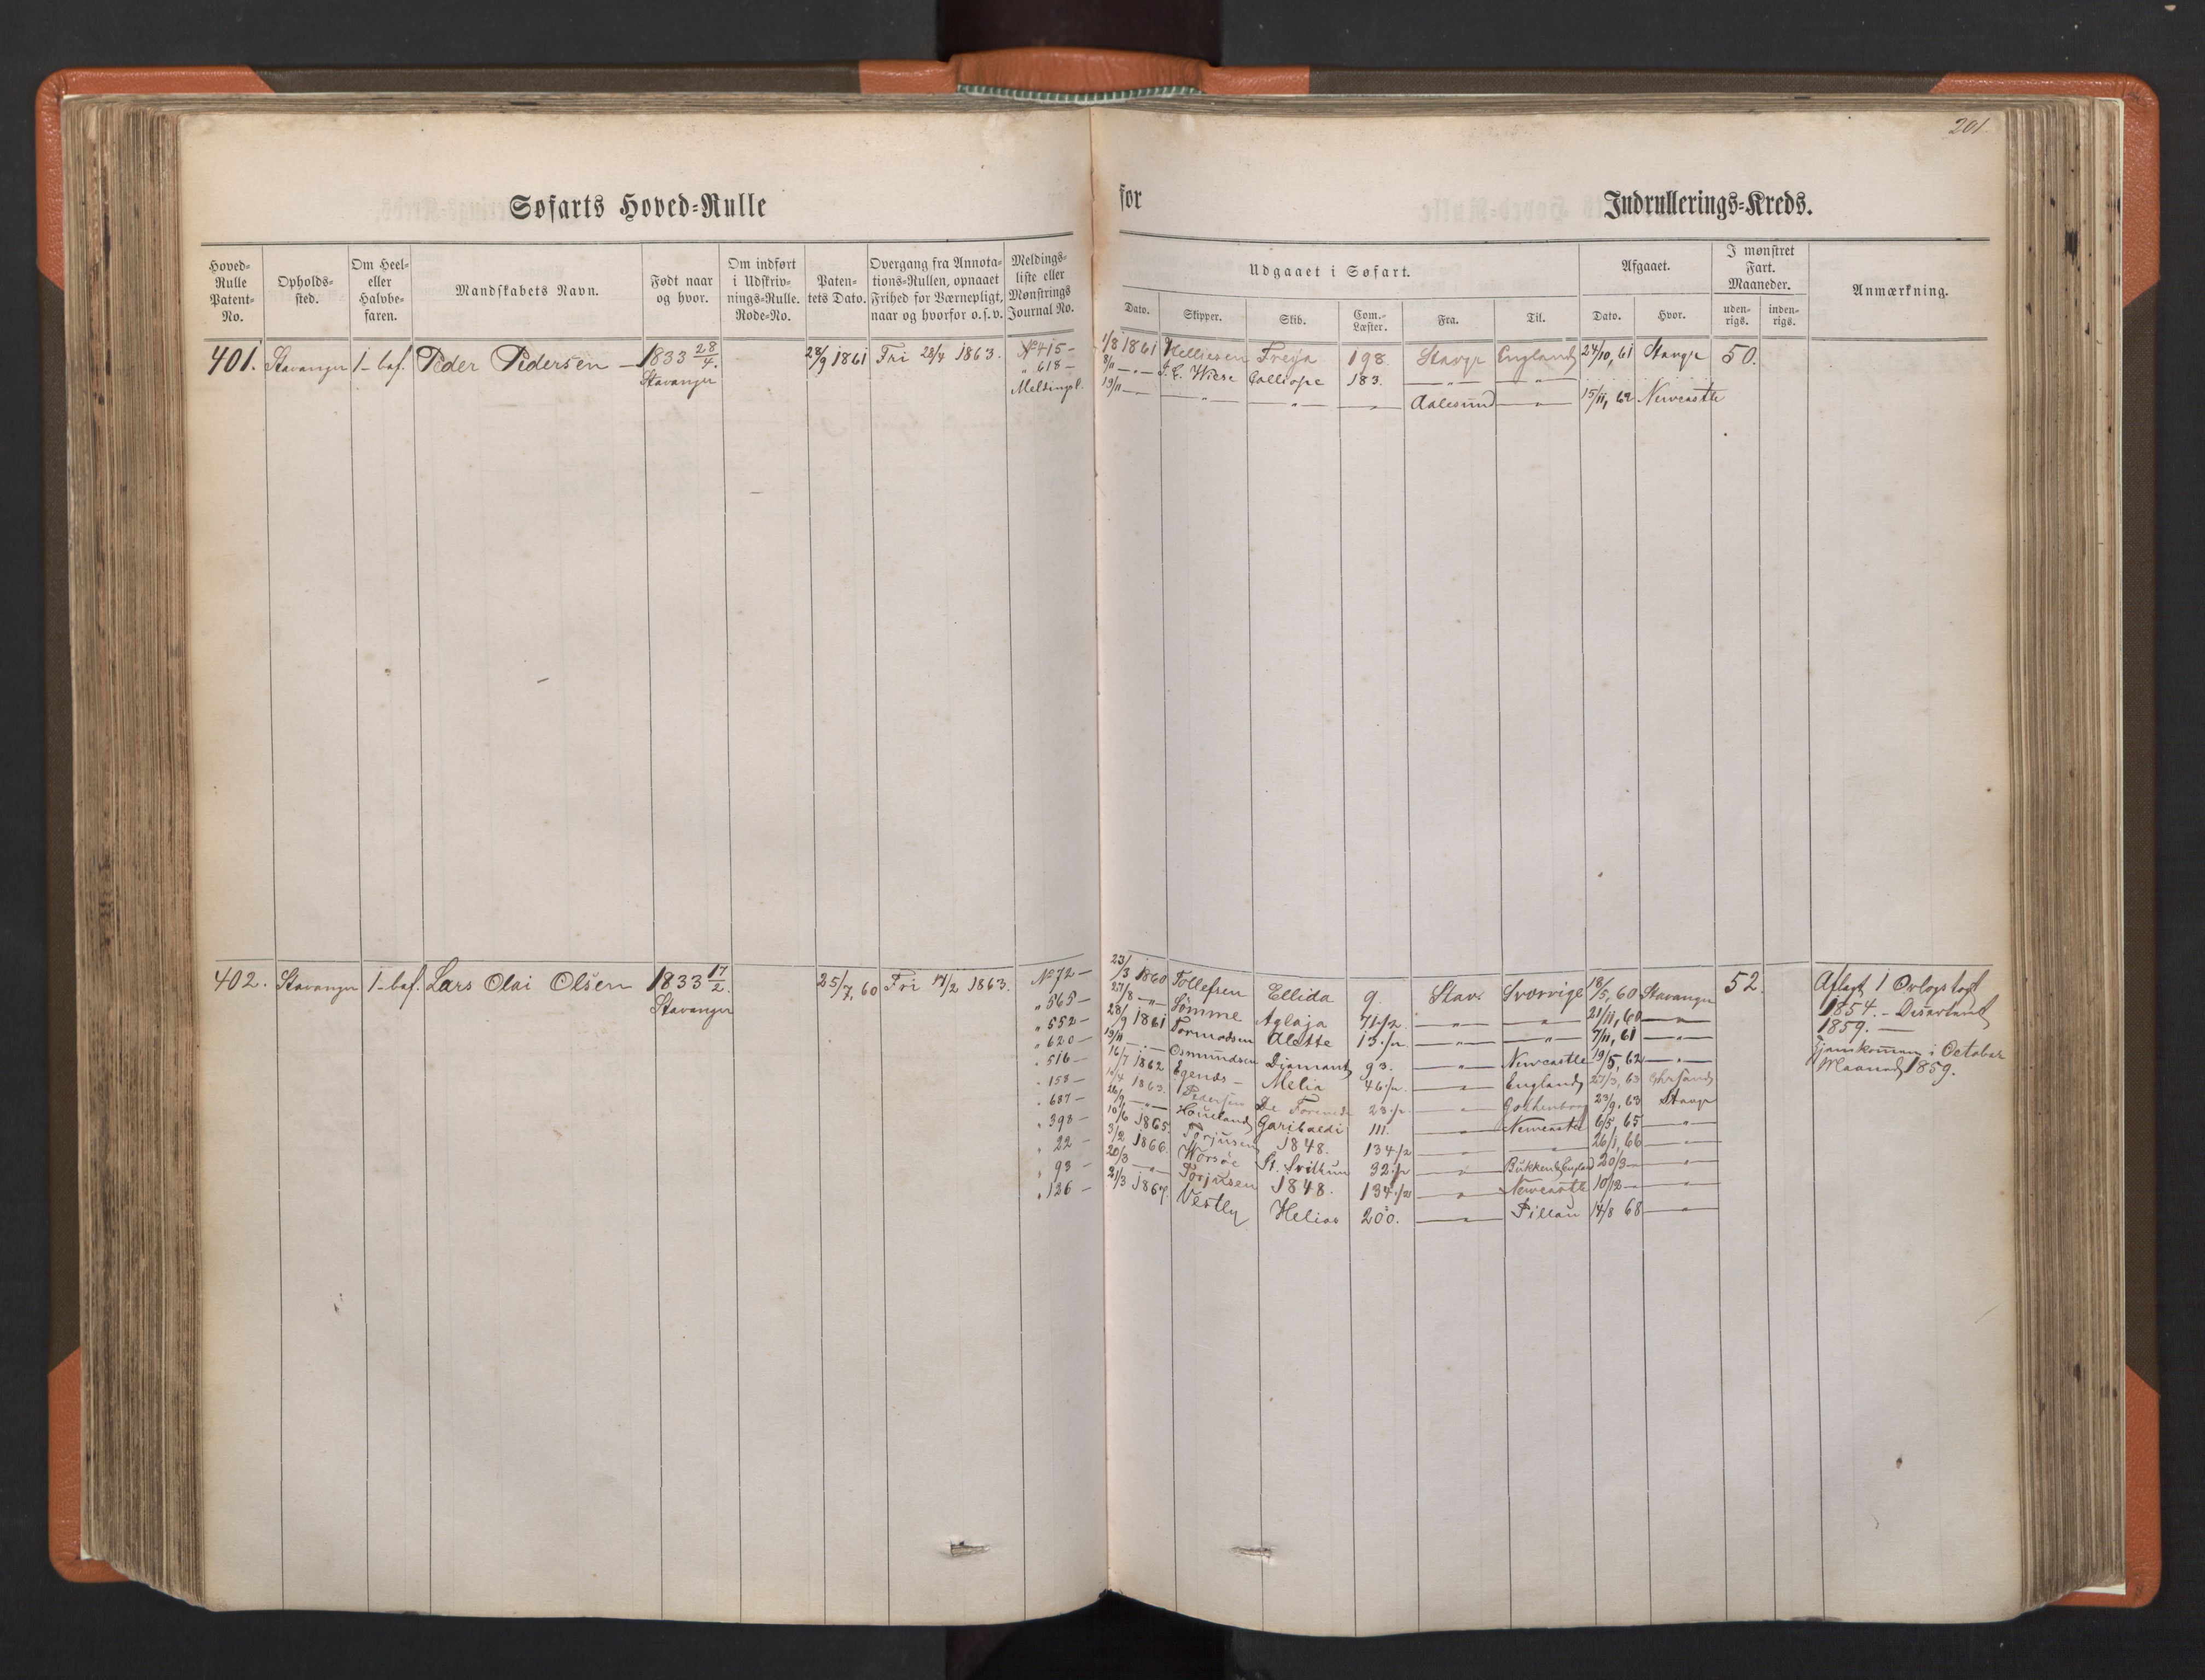 201
Søfarts Hoved-Rulle for Indrullerings-Kreds.
Hoved-Rulle Patent-No. Opholdssted. Om Heel- eller Halvbefaren. Mandskabets Navn. Født naar og hvor. Om indført i Udskrivnings-Rulle. Rode-No. Patentets Dato. Overgang fra Annotations-Rullen, opnaaet Frihed for Værnepligt, naar og hvorfor o.s.v. Meldingsliste eller Mønstrings Journal No.
Udgaaet i Søfart. Afgaaet. I mønstret Fart. Maaneder. Anmærkning.
Dato. Skipper. Skib. Com.-Læster. Fra. Til. Dato. Hvor. udenrigs. indenrigs.
401. Stavanger 1-baf. Peder Pedersen 1833 28/4. 28/9 1861 Fri 28/4 1863. No 415- 1/8 1861 Helliesen Freya 198. Stavgr England 24/10, 61 Stavgr 50.
Stavanger " 618- 8/11 -"- J. C. Wiese Calliope 183. -"- -"-
Meldingsl. 19/11 -"- -"- -"- Aalesund -"- 15/11, 62 Newcastle
402. Stavanger 1-baf. Lars Olai Olsen 1833 17/2. 25/7, 60 Fri 17/2 1863. No 72- 23/3 1860 Tollefsen Ellida 9. Stav. Sverrige 18/5, 60 Stavanger 52. Aflagt 1 Orlogstogt
Stavanger " 565- 27/8 -"- Sømme Aglaja 71 1/2 -"- -"- 21/11, 60 -"- 1854. - Deserteret
" 552- 28/9 1861 Tormodsen Alette 13 1/2 -"- -"- 7/11, 61 -"- 1859. -
" 620- 19/11 -"- Osmundsen Diamant 93. -"- Newcastle 19/5, 62 -"- Hjemkommen i October
" 516- 16/7 1862 Egenæs - Melia 46 1/2 -"- England 27/3, 63 Chrsand Maaned 1859.
" 153- 1863. Pedersen De Forenede 23 1/2 -"- Gothenborg 23/9, 63 Stavgr
" 687- 26/9 -"- Houeland Garibaldi 111. -"- Newcastle 6/5, 65 -"-
" 393- 10/6 1865. Torjusen 1848. 134 1/2 -"- -"- 26/1, 66 -"-
" 22- 3/2 1866. Worsøe St. Svithun 32 1/2 -"- Bukken & England 20/3- -"-
" 93- 20/3 -"- Torjusen 1848. 134 1/2 -"- Newcastle 10/12- -"-
" 126- 21/3 1867. Vestly Helios 200. -"- Pillau 14/8 68 -"-